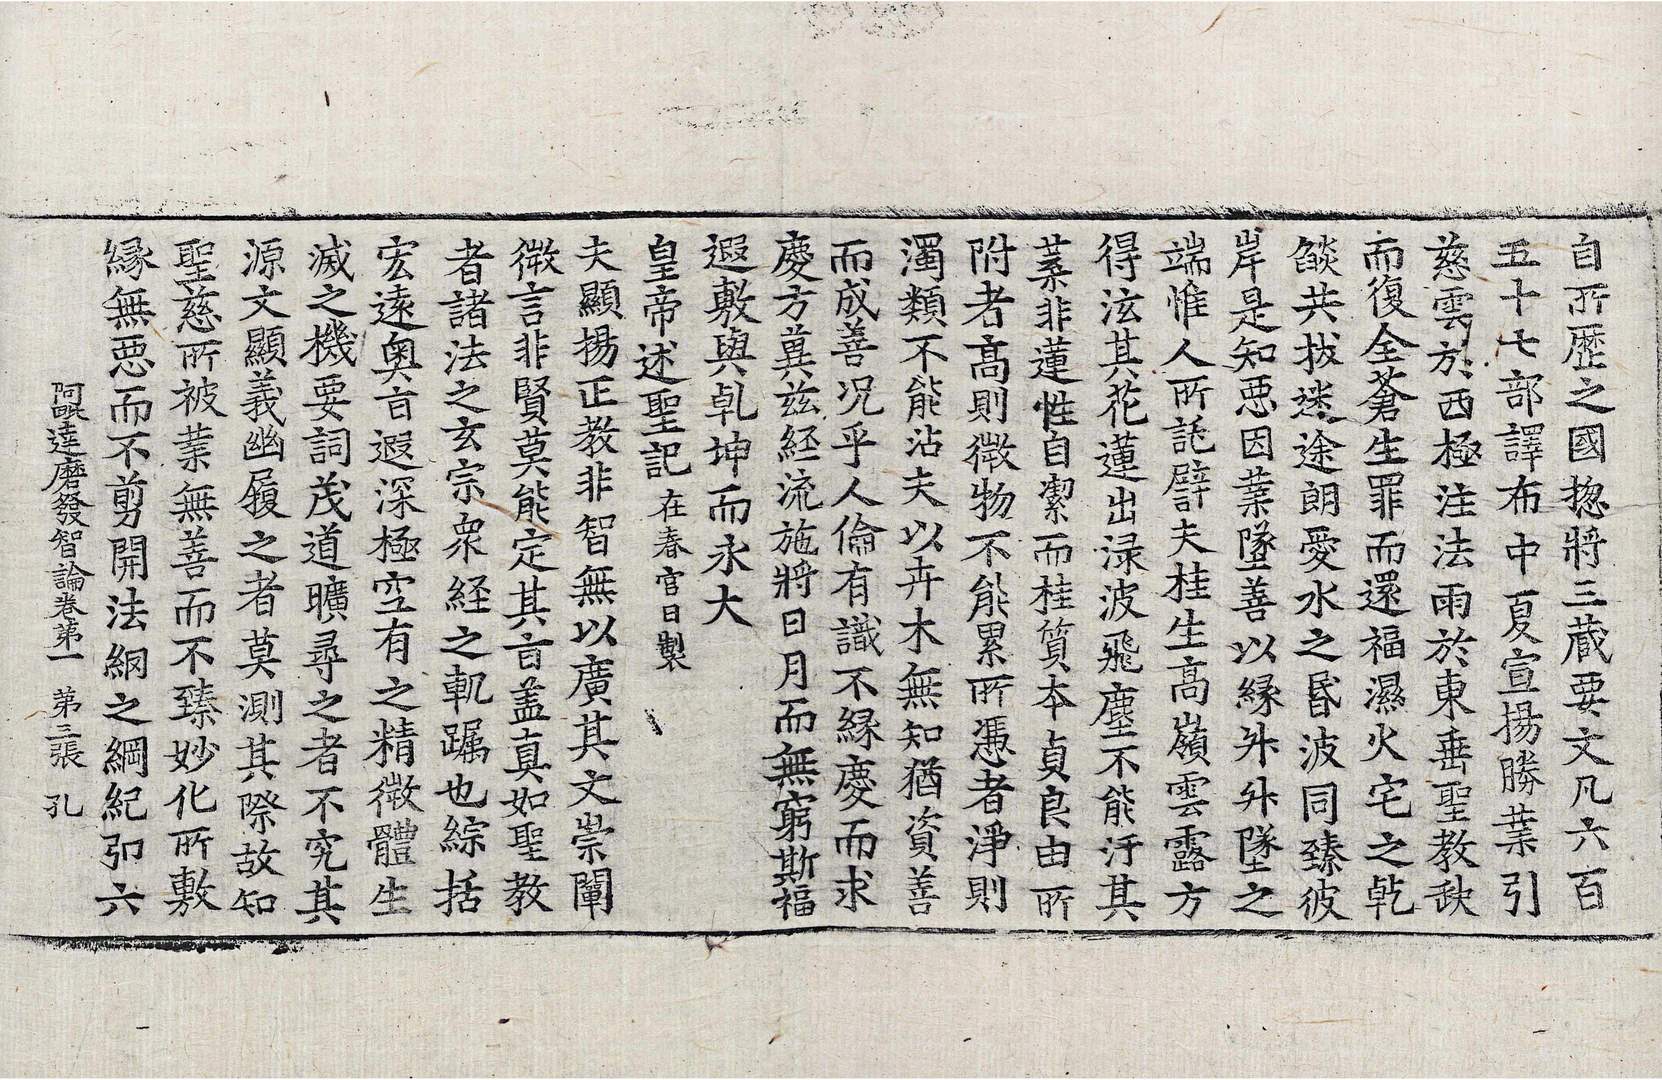 自所歷之國惣將三藏要文凡六百
五十七部譯布中夏宣揚勝業引
慈雲於西極注法雨於東垂聖教缺
而復全蒼生罪而還福濕火宅之乾
燄共拔迷途朗愛水之昏波同臻彼
岸是知惡因業墜善以緣升升墜之
端惟人所託譬夫桂生高嶺雲露方
得泫其花蓮出淥波飛塵不能汙其
葉非蓮性自潔而桂質本貞良由所
附者高則微物不能累所憑者淨則
濁類不能沾夫以卉木無知猶資善
而成善况乎人倫有識不緣慶而求
慶方兾茲経流施將日月而無窮斯福
遐敷與乹坤而永大
皇帝述聖記 在春官日製
夫顯揚正教非智無以廣其文崇闡
微言非賢莫能定其旨盖真如聖教
者諸法之玄宗衆経之軌躅也綜括
宏遠奧旨遐深極空有之精微體生
滅之機要詞茂道曠尋之者不究其
源文顯義幽履之者莫測其際故知
聖慈所被業無善而不臻妙化所敷
緣無惡而不剪開法網之綱紀弘六
阿毗達磨發智論卷第一 第三張 孔